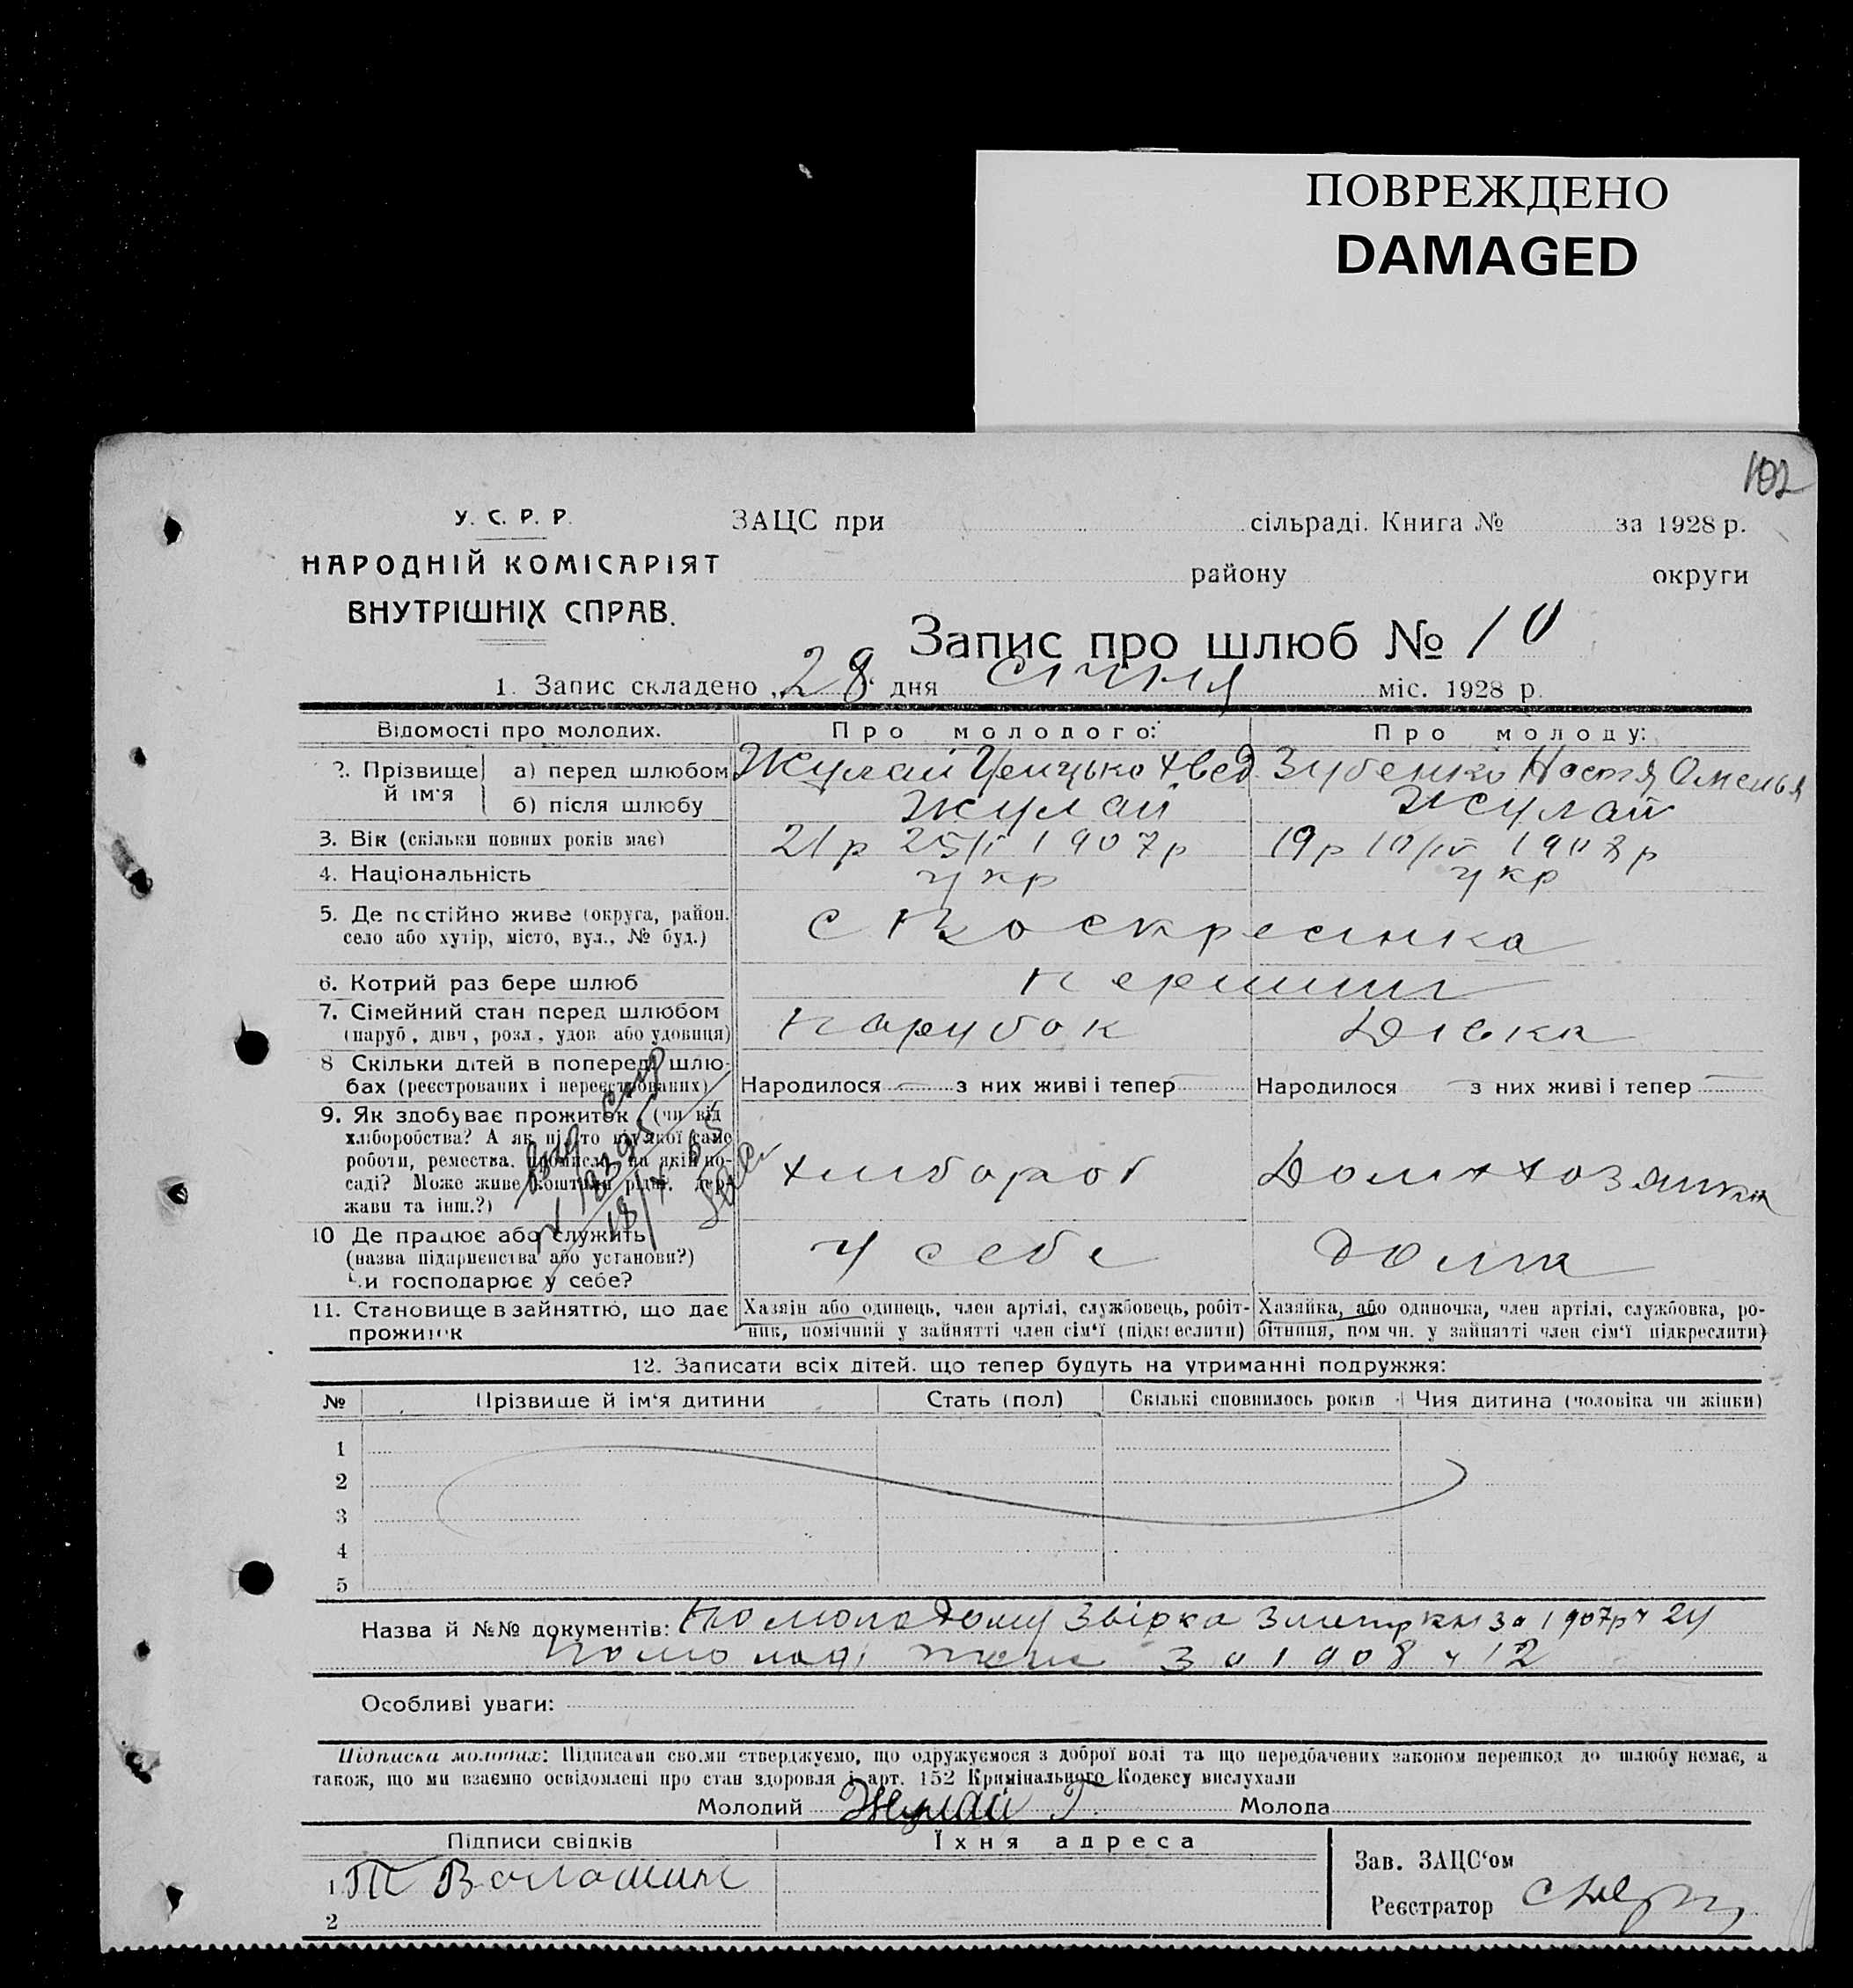 ПОВРЕЖДЕНО
DAMAGED
102
У. С. Р. Р.
НАРОДНІЙ КОМІСАРІЯТ
ВНУТРІШНІХ СПРАВ.
ЗАЦС при сільраді. Книга № за 1928 р.
району округи
Запис про шлюб № 10
1. Запис складено „28“ дня січня міс. 1928 р.
Відомості про молодих. Про молодого: Про молоду:
2. Прізвище й ім'я
а) перед шлюбом Жулай Грицько Хвед. Зубенко Настя Омелья
б) після шлюбу Жулай Жулай
3. Вік (скільки повних років має) 21 р 25/I 1907 р 19 р 10/IV 1908 р
4. Національність укр укр
5. Де постійно живе (округа, район.
село або хутір, місто, вул., № буд.) с Воскресінка
6. Котрий раз бере шлюб перший
7. Сімейний стан перед шлюбом
(паруб., дівч., розл., удов. або удовиця) парубок Дівка
8 Скільки дітей в поперед. шлю-
бах (реєстрованих і переєстрованих) Народилося — з них живі і тепер Народилося — з них живі і тепер —
9. Як здобуває прожиток (чи від
хліборобства? А як ні, то від якої саме
роботи, ремества, промисла, на якій по-
саді? Може живе коштами рідні, дер-
жави та інш.?) хлібороб Домохозяйка
10 Де працює або служить
(назва підприєнства або установи?)
Чи господарює у себе? у себе Дома
11. Становище в зайняттю, що дає
прожиток
Хазяїн або одинець, член артілі, службовець, робіт-
ник, помічний у зайнятті член сім'ї (підкреслити)
Хазяйка, або одиночка, член артілі, службовка, ро-
бітниця, пом чн. у зайнятті член сім'ї підкреслити)
12. Записати всіх дітей. що тепер будуть на утриманні подружжя:
№ Прізвище й ім'я дитини Стать (пол) Скількі сповнилось років Чия дитина (чоловіка чи жінки)
1
2
3
4
5
Назва й №№ документів: По молодому Звірка з метр кн за 1907 р ч 24
По молоді теж за 1908 ч 12
Особливі уваги:
Підписка молодих: Підписами своїми стверджуємо, що одружуємося з доброї волі та що передбачених законом перешкод до шлюбу немає, а
також, що ми взаємно освідомлені про стан здоровля і арт. 152 Кримінального Кодексу вислухали
Молодий Жулай Г. Молода
Підписи свідків Їхня адреса
Зав. ЗАЦС'ом
1 Т Волошин
Реєстратор
2